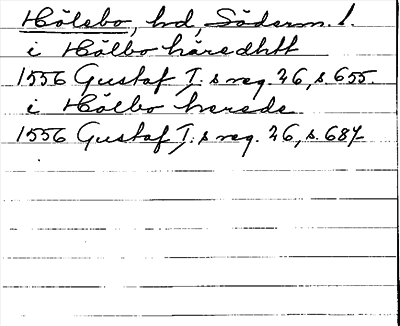 Hölebo, hd, Söderm. l.
i Hölbo häredhtt
1556 Gustaf I:s reg. 26, s. 655.
i Hölbo herede
1556 Gustaf I:s reg. 26, s. 687